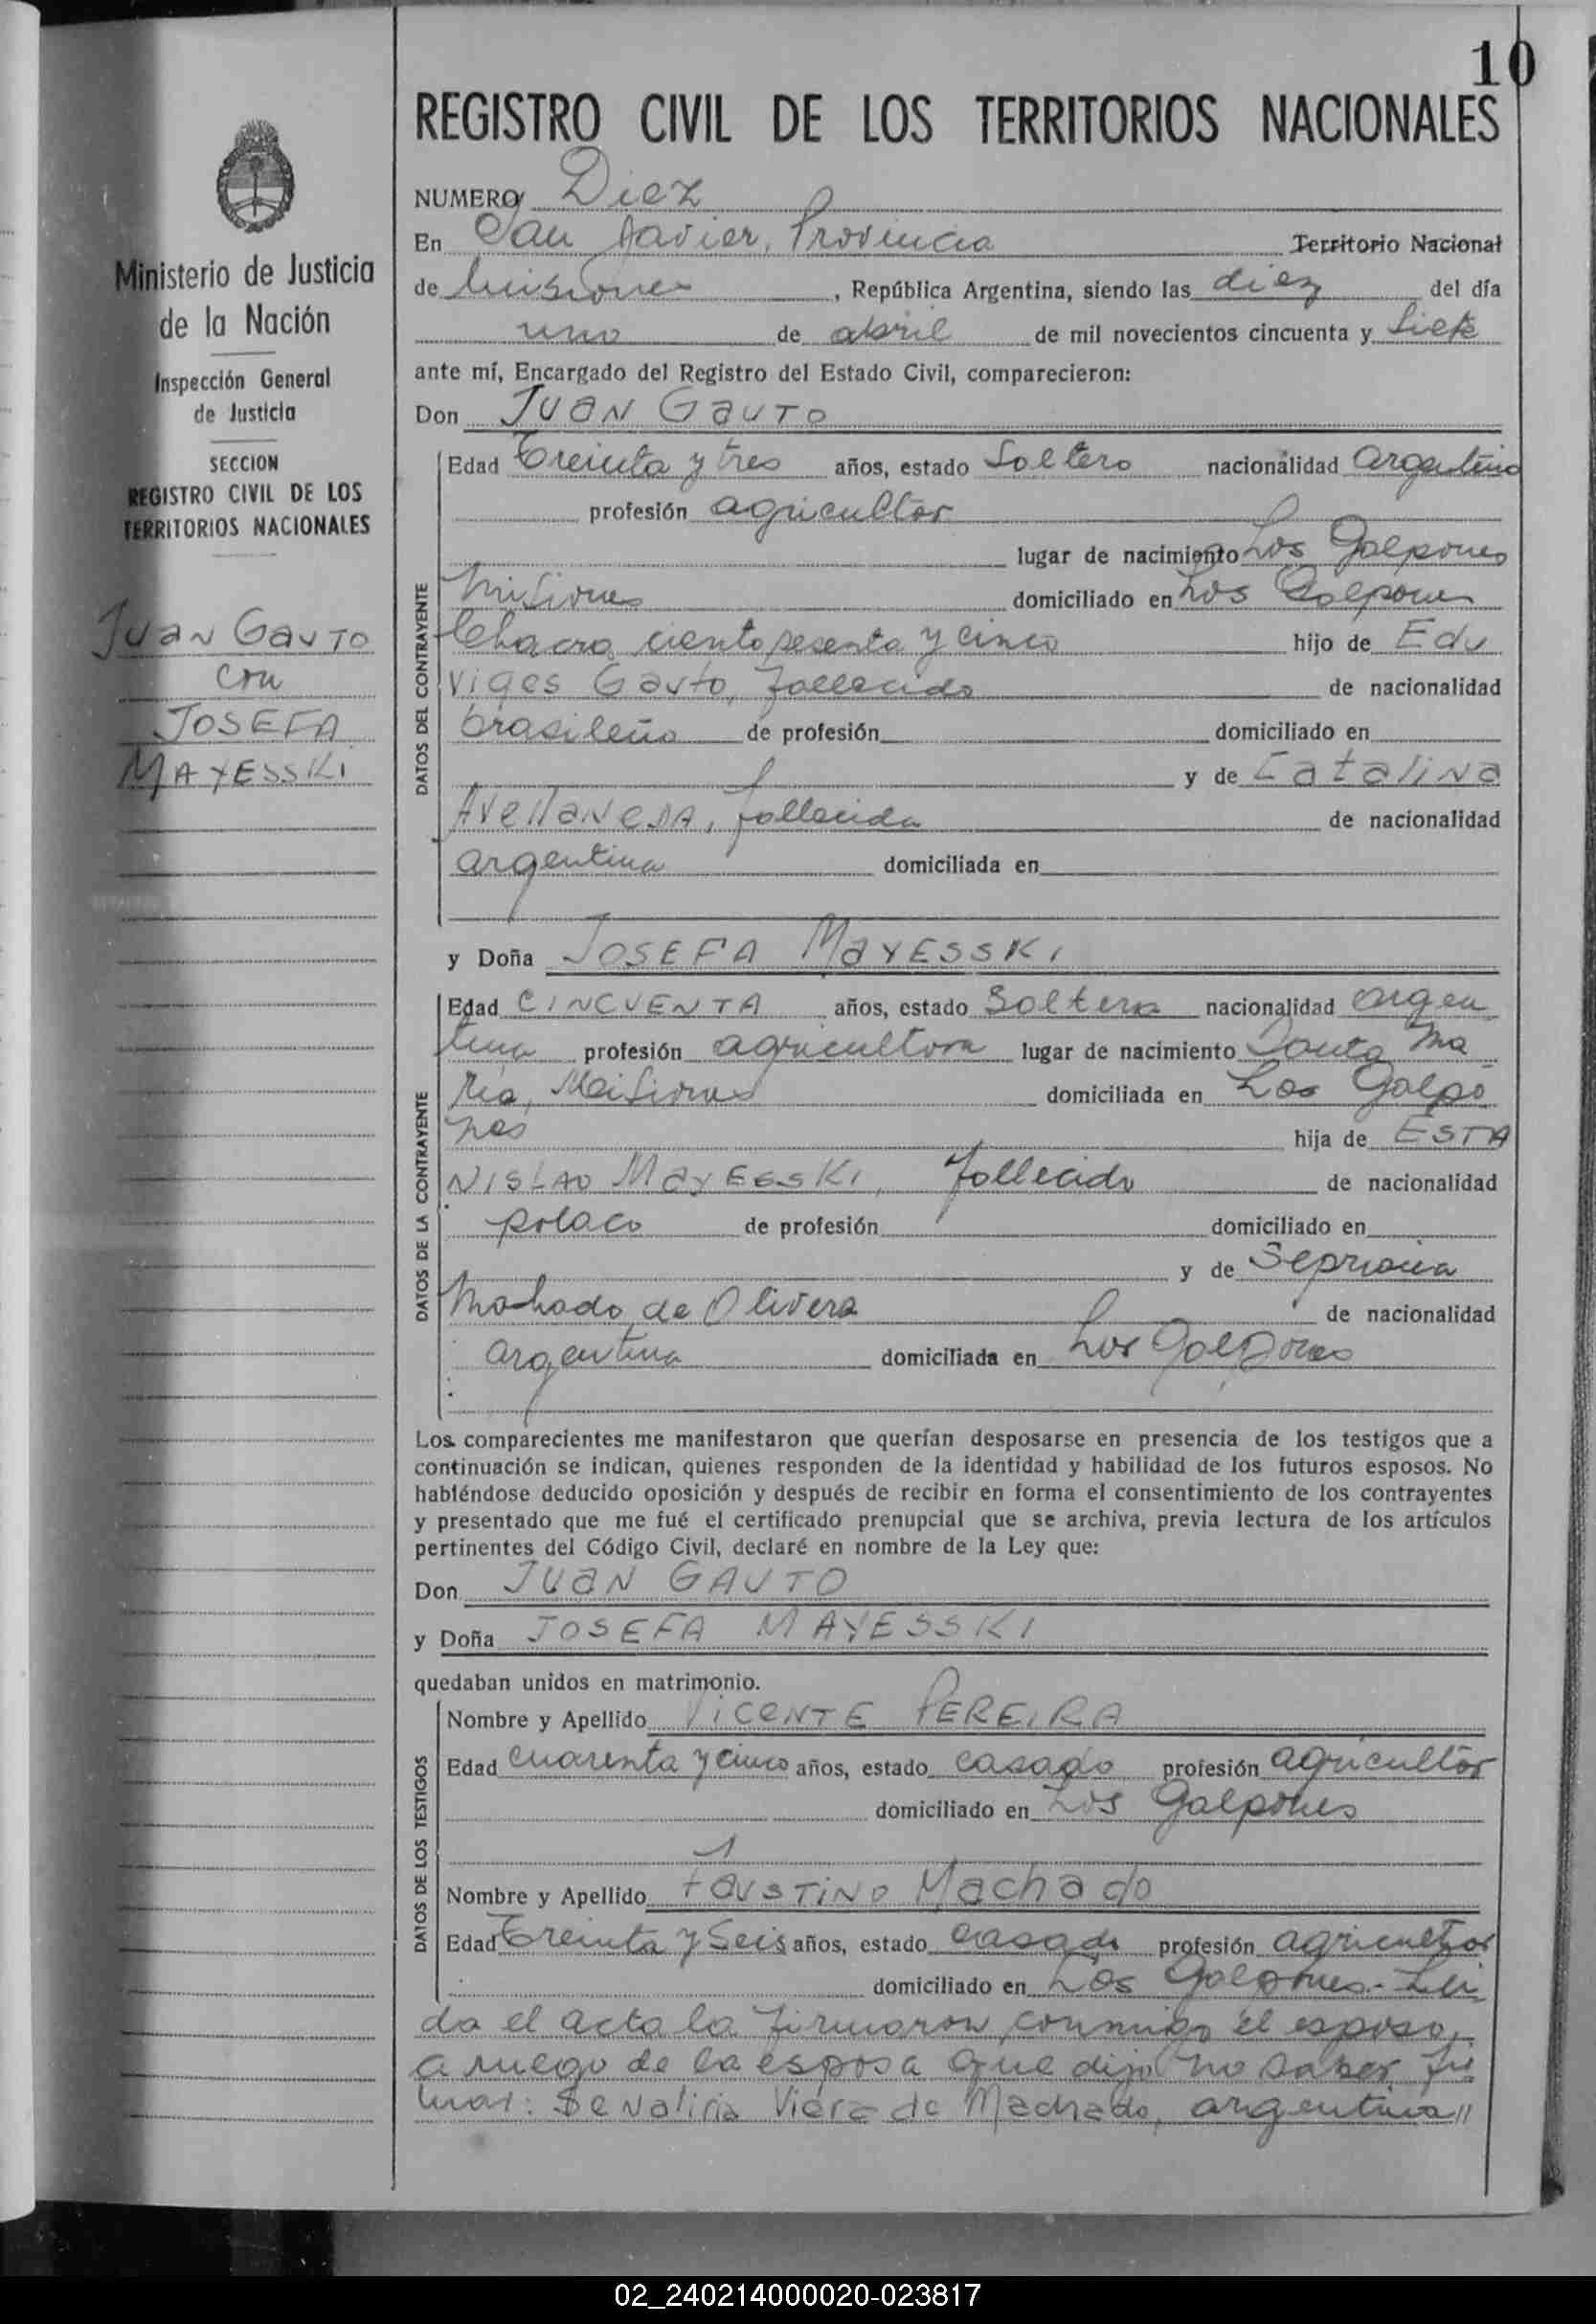 10
REGISTRO CIVIL DE LOS TERRITORIOS NACIONALES
Ministerio de Justicia
de la Nación
Inspección General
de Justicia
SECCION
REGISTRO CIVIL DE LOS
TERRITORIOS NACIONALES
JUAN GAUTO
con
JOSEFA
MAYESSKI
NUMERO Diez
En San Javier, Provincia Territorio Nacional
de Misiones, República Argentina, siendo las diez del día
uno de abril de mil novecientos cincuenta y siete
ante mí, Encargado del Registro del Estado Civil, comparecieron:
Don JUAN GAUTO
DATOS DEL CONTRAYENTE
Edad Treinta y tres años, estado Soltero nacionalidad argentino
profesión agricultor
lugar de nacimiento Los Galpones
Misiones domiciliado en Los Galpones
Chacra ciento sesenta y cinco hijo de Edu
viges Gauto, fallecido de nacionalidad
brasileño de profesión domiciliado en
y de Catalina
Avellaneda, fallecida de nacionalidad
argentina domiciliada en
y Doña JOSEFA MAYESSKI
DATOS DE LA CONTRAYENTE
Edad CINCUENTA años, estado Soltera nacionalidad argen
tina profesión agricultora lugar de nacimiento Santa Ma
ría, Misiones domiciliada en Los Galpo
nes hija de ESTA
NISLAO MAYESSKI, fallecido de nacionalidad
polaco de profesión domiciliado en
y de Sepriana
Machado de Olivera de nacionalidad
argentina domiciliada en Los Galpones
Los comparecientes me manifestaron que querían desposarse en presencia de los testigos que a
continuación se indican, quienes responden de la identidad y habilidad de los futuros esposos. No
habiéndose deducido oposición y después de recibir en forma el consentimiento de los contrayentes
y presentado que me fué el certificado prenupcial que se archiva, previa lectura de los artículos
pertinentes del Código Civil, declaré en nombre de la Ley que:
Don JUAN GAUTO
y Doña JOSEFA MAYESSKI
quedaban unidos en matrimonio.
DATOS DE LOS TESTIGOS
Nombre y Apellido VICENTE PEREIRA
Edad cuarenta y cinco años, estado casado profesión agricultor
domiciliado en Los Galpones
Nombre y Apellido FAUSTINO Machado
Edad Treinta y Seis años, estado casado profesión agricultor
domiciliado en Los Galpones.- Leí
da el acta la firmaron conmigo el esposo,
a ruego de la esposa que dijo no saber fir
mar: Viera de Machado, argentina
02_240214000020-023817